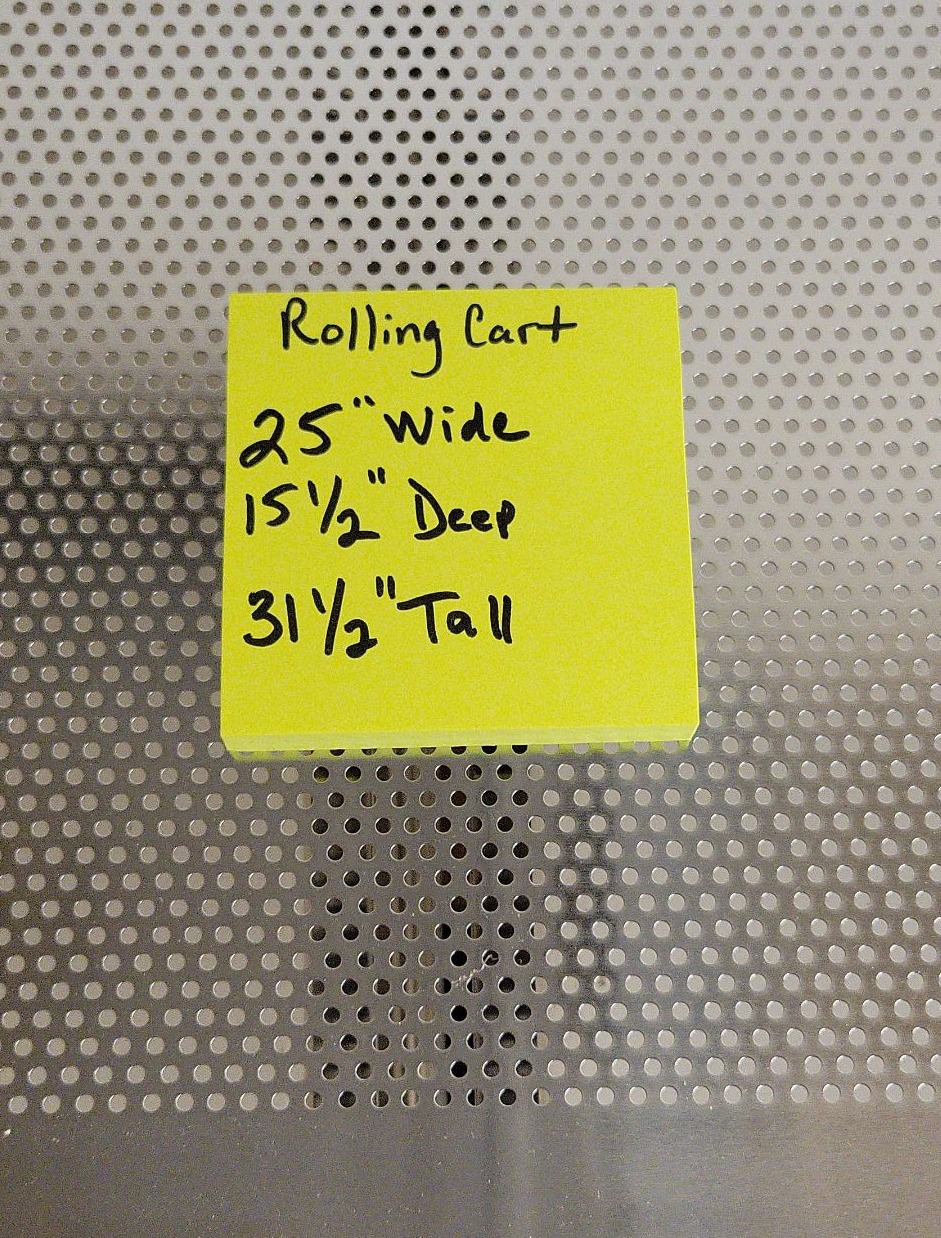 Rolling Cart
25" Wide
15 1/2" Deep
31 1/2" Tall